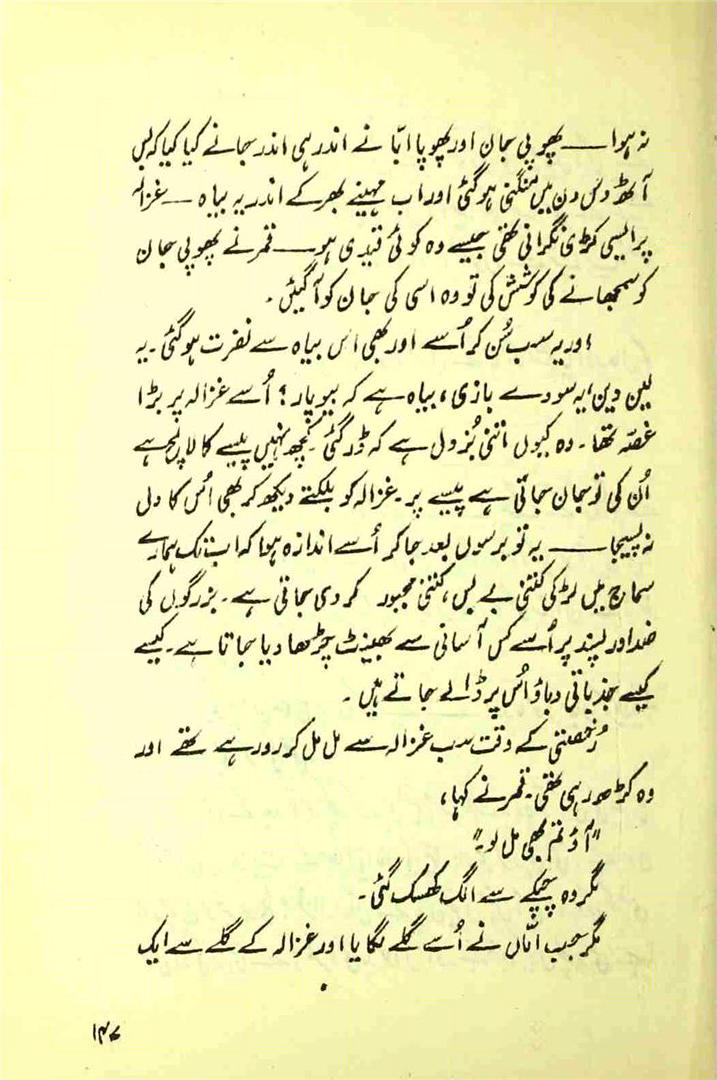 نہ ہوا ــــ پھوپی جان اور پھوپا ابّا نے اندر ہی اندر جانے کیا کیا کہ بس
آٹھ دس دن میں منگنی ہو گئی اور اب مہینے بھر کے اندر یہ بیاہ ــ غزالہ
پر ایسی کڑی نگرانی تھی جیسے وہ کوئی قیدی ہو ــــ قمر نے پھوپی جان
کو سمجھانے کی کوشش کی تو وہ اسی کی جان کو آ گئیں۔
اور یہ سب سُن کر اُسے اور بھی اس بیاہ سے نفرت ہو گئی۔ یہ
لین دین، یہ سودے بازی، بیاہ ہے کہ بیوپار؟ اُسے غزالہ پر بڑا
غصّہ تھا۔ وہ کیوں اتنی بُزدل ہے کہ ڈر گئی۔ کچھ نہیں پیسے کا لالچ ہے
اُن کی تو جان جاتی ہے پیسے پر۔ غزالہ کو بلکتے دیکھ کر بھی اُس کا دل
نہ پسیجا ــــ یہ تو برسوں بعد جا کر اُسے اندازہ ہوا کہ اب تک ہمارے
سماج میں لڑکی کتنی بے بس، کتنی مجبور کر دی جاتی ہے۔ بزرگوں کی
ضد اور پسند پر اُسے کس آسانی سے بھینٹ چڑھا دیا جاتا ہے۔ کیسے
کیسے جذباتی دباؤ اُس پر ڈالے جاتے ہیں۔
رُخصتی کے وقت سب غزالہ سے مل مل کر رو رہے تھے اور
وہ کڑھ رہی تھی۔ قمر نے کہا،
"آؤ تم بھی مل لو۔"
مگر وہ چپکے سے الگ کھسک گئی۔
مگر جب امّاں نے اُسے گلے لگایا اور غزالہ کے گلے سے ایک
۱۴۷